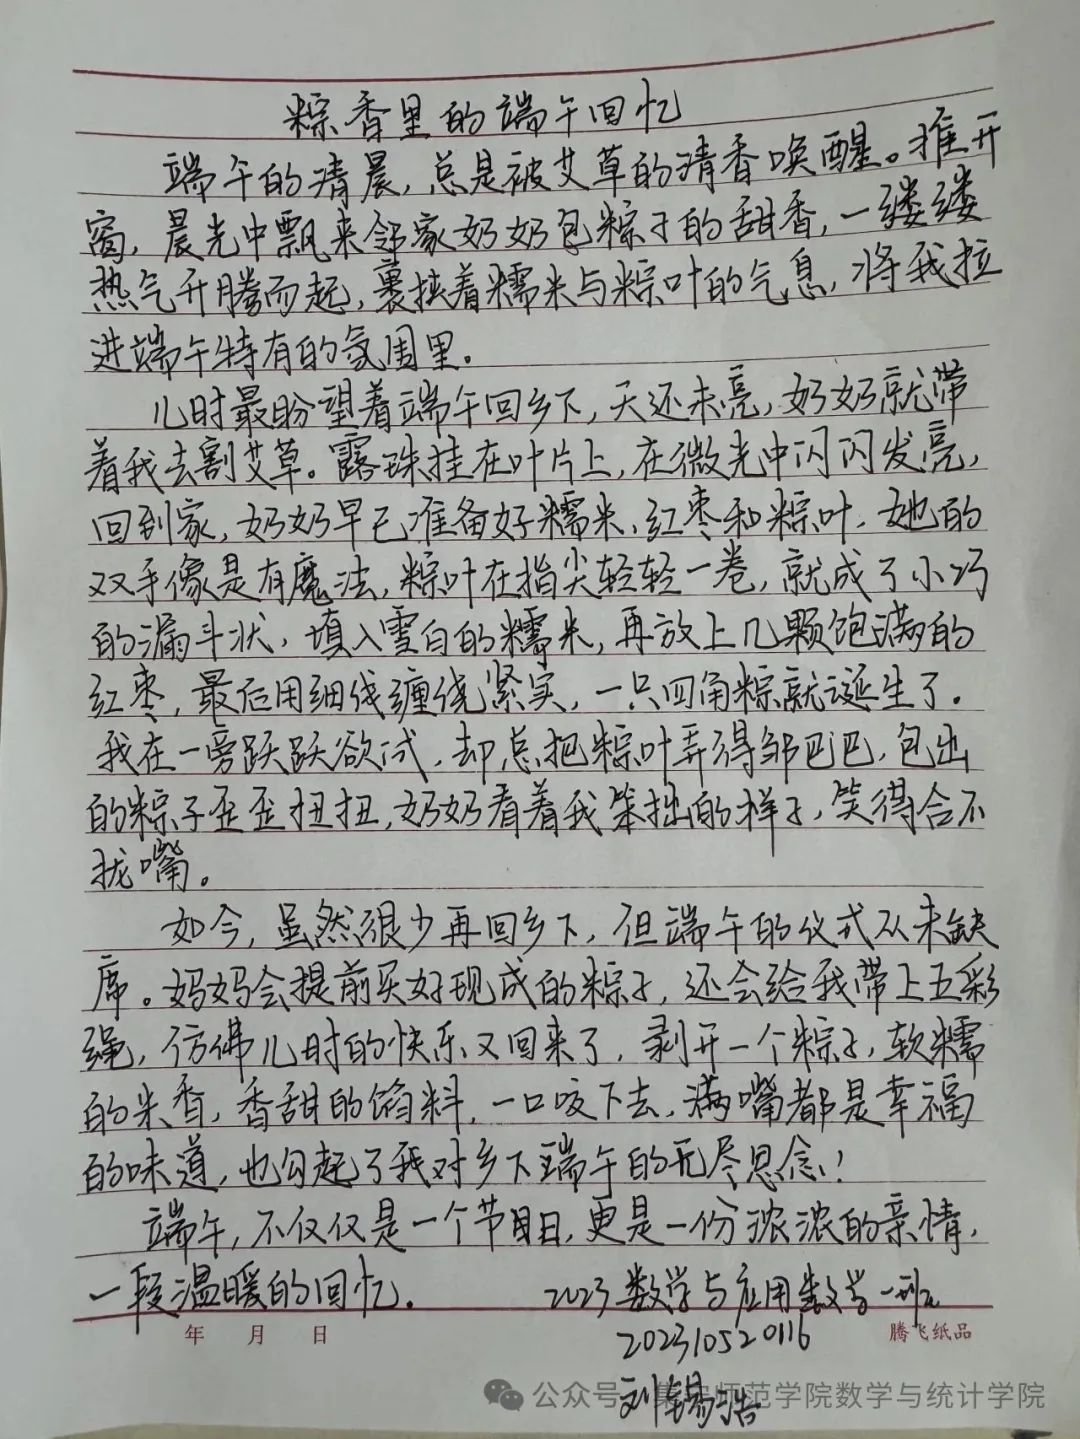 粽香里的端午回忆
端午的清晨，总是被艾草的清香唤醒。推开
窗，晨光中飘来邻家奶奶包粽子的甜香，一缕缕
热气升腾而起，裹挟着糯米与粽叶的气息，将我拉
进端午特有的氛围里。
儿时最盼望着端午回乡下，天还未亮，奶奶就带
着我去割艾草。露珠挂在叶片上，在微光中闪闪发亮，
回到家，奶奶早已准备好糯米、红枣和粽叶，她的
双手像是有魔法，粽叶在指尖轻轻一卷，就成了小巧
的漏斗状，填入雪白的糯米，再放上几颗饱满的
红枣，最后用细线缠绕紧实，一只四角粽就诞生了。
我在一旁跃跃欲试，却总把粽叶弄得邹巴巴，包出
的粽子歪歪扭扭，奶奶看着我笨拙的样子，笑得合不
拢嘴。
如今，虽然很少再回乡下，但端午的仪式从未缺
席。妈妈会提前买好现成的粽子，还会给我带上五彩
绳，仿佛儿时的快乐又回来了，剥开一个粽子，软糯
的米香，香甜的馅料，一口咬下去，满嘴都是幸福
的味道，也勾起了我对乡下端午的无尽思念！
端午，不仅仅是一个节目日，更是一份浓浓的亲情，
一段温暖的回忆。
2023数学与应用数学一班
202310520116
年 月 日
腾飞纸品
刘锡浩
公众号 集宁师范学院数学与统计学院